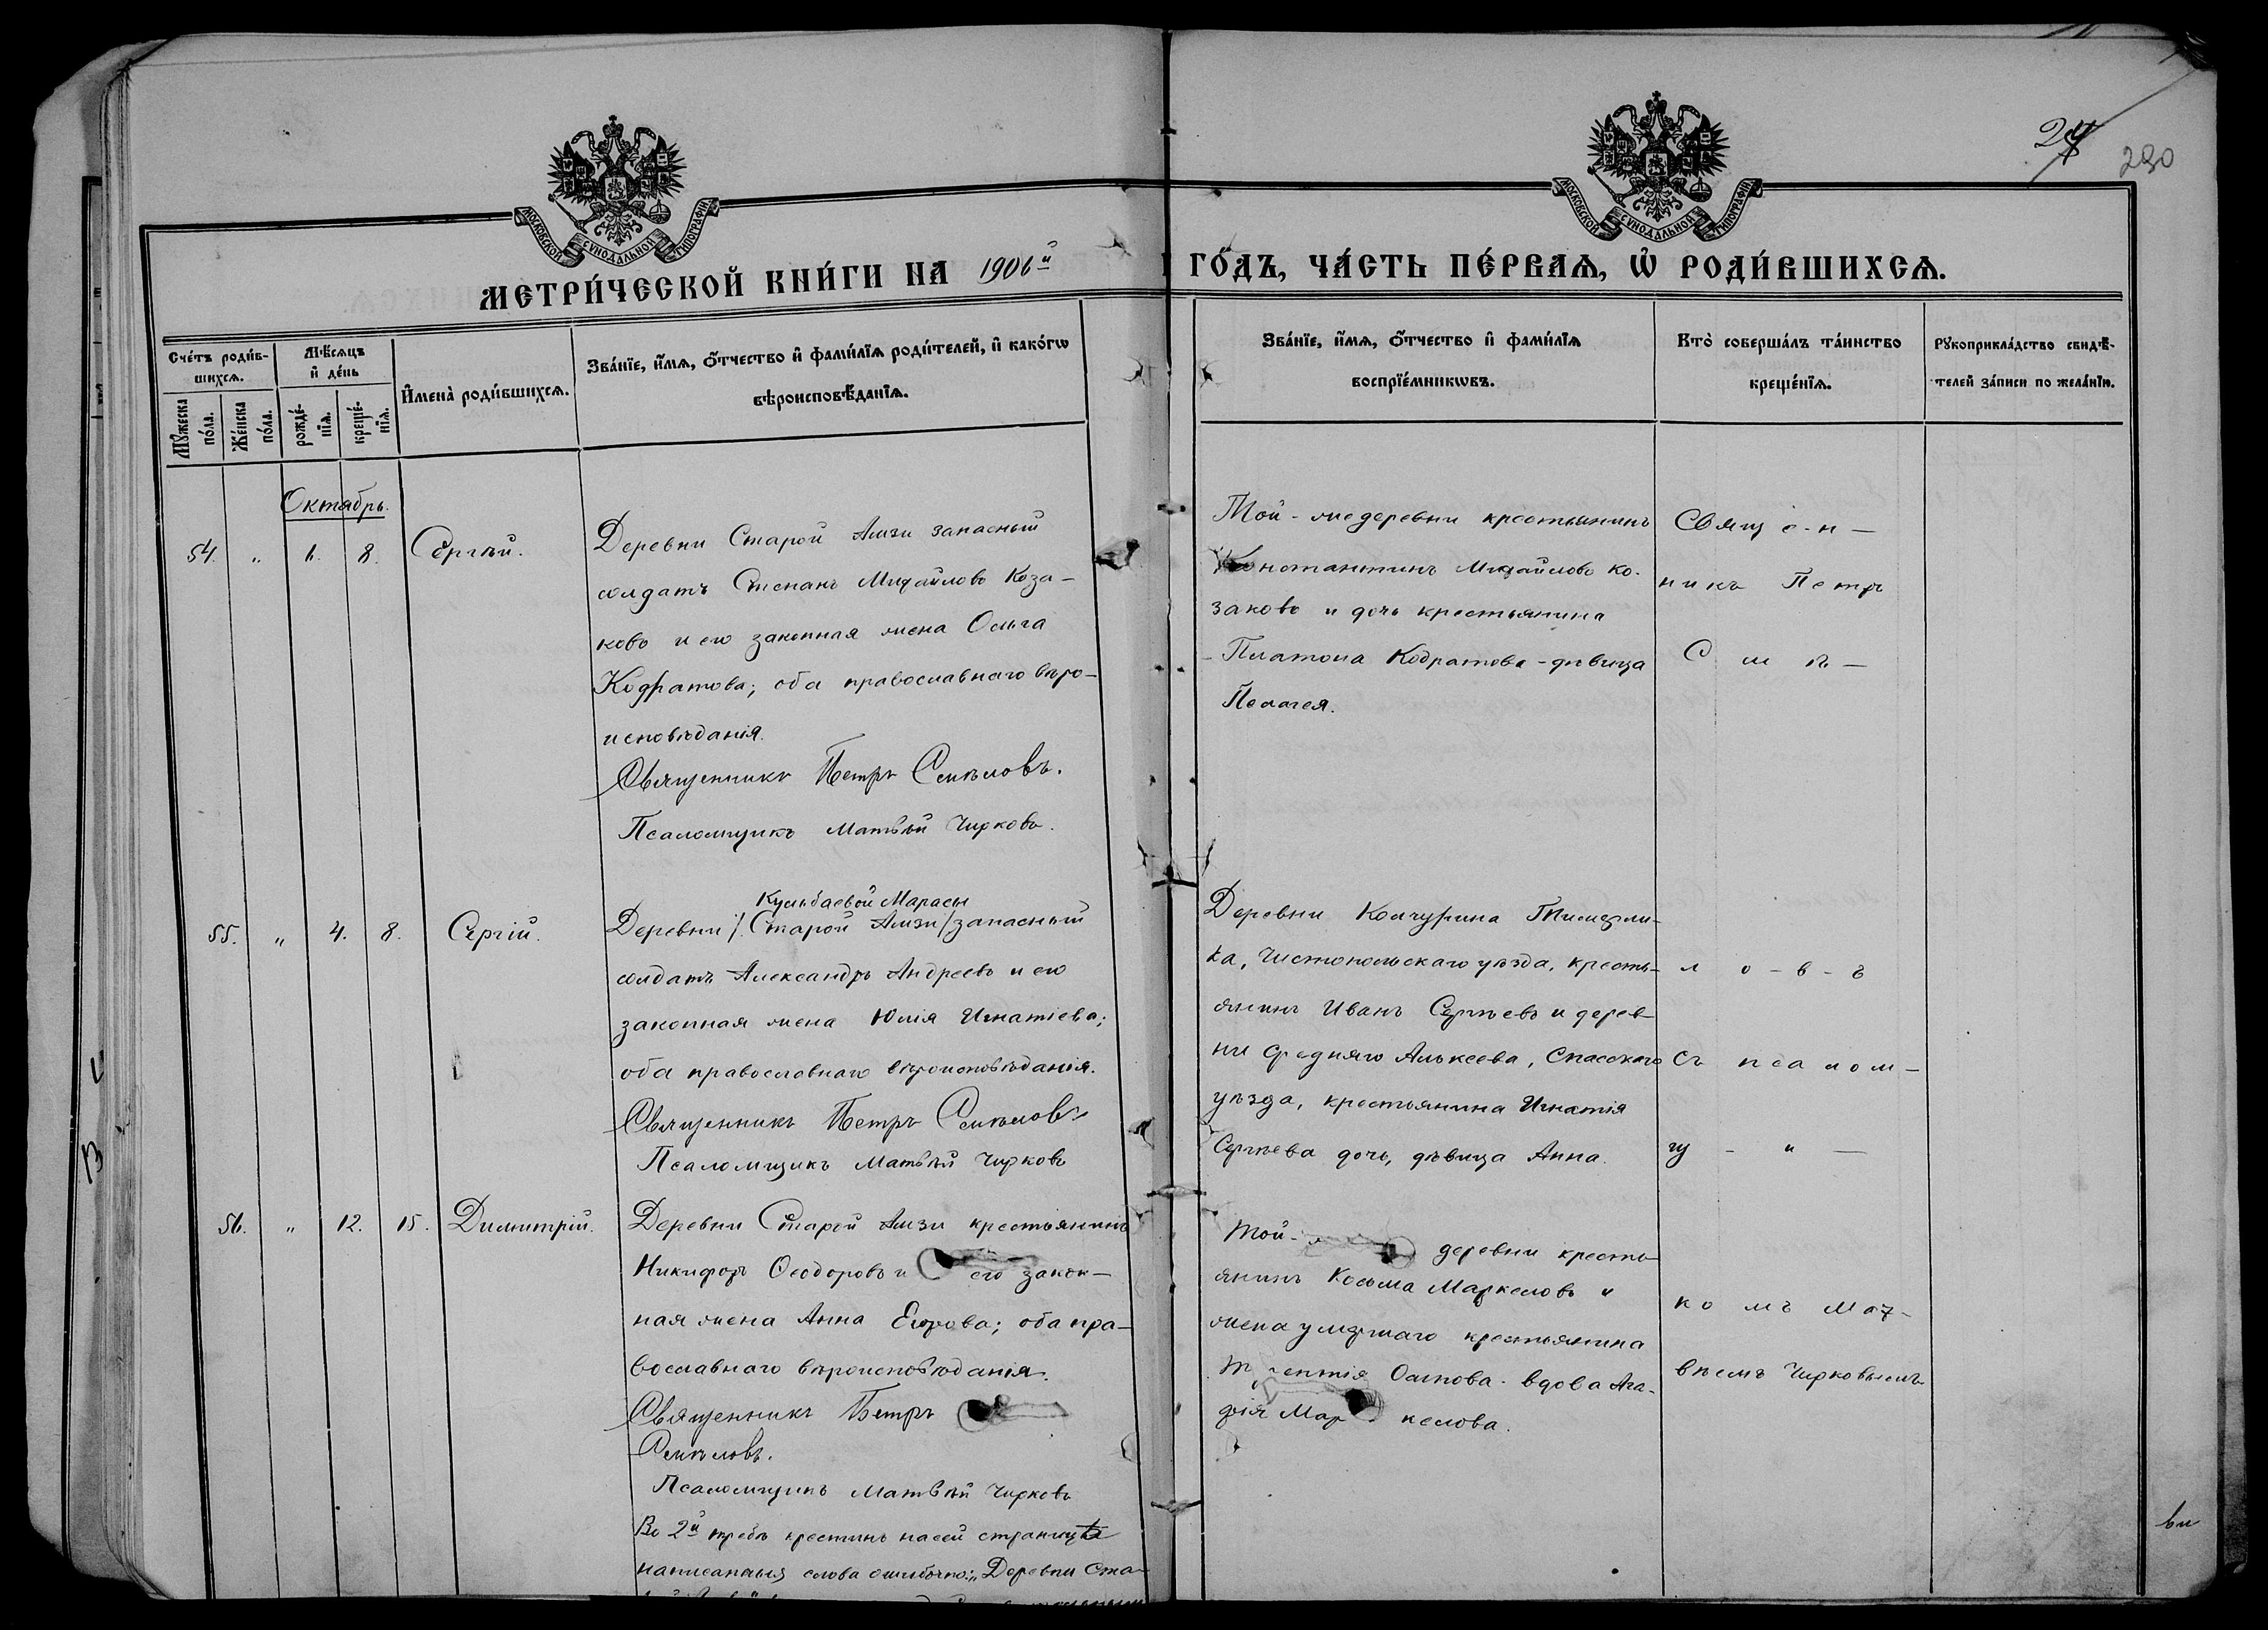 24
230
МОСКОВСКОЙ СѴНОДАЛЬНОЙ ТИПОГРАФІИ
МОСКОВСКОЙ СѴНОДАЛЬНОЙ ТИПОГРАФІИ
МЕТРИ́ЧЕСКОЙ КНИ́ГИ НА 1906й ГО́ДЪ, ЧА́СТЬ ПЕ́РВАѦ, Ѡ҆ РОДИ́ВШИХСѦ.
Сче́тъ роди́в-
шихсѧ.
Мꙋ́жеска по́ла.
Же́нска по́ла.
Мѣ́сѧцъ
и҆ де́нь
рожде́-
нїѧ.
креще́-
нїѧ.
И҆мена̀ роди́вшихсѧ.
Зва́нїе, и҆́мѧ, ѻ҆́тчество и҆ фами́лїѧ роди́телей, и҆ како́гѡ
вѣроисповѣ́данїѧ.
Зва́нїе, и҆́мѧ, ѻ҆́тчество и҆ фами́лїѧ
воспрїе́мникѡвъ.
Кто̀ соверша́лъ та́инство
креще́нїѧ.
Рꙋкоприкла́дство свидѣ́-
телей за́писи по жела́нїю.
Октябрь.
54. " 6. 8. Сергѣй.
Деревни Старой Амзи запасный
солдатъ Степанъ Михайловъ Коза-
ковъ и его законная жена Ольга
Кодратова; оба православнаго вѣро-
исповѣданія.
Священникъ Петръ Смѣловъ.
Псаломщикъ Матвѣй Чирковъ.
Той-же деревни крестьянинъ
Константинъ Михайловъ Ко-
заковъ и дочь крестьянина
Платона Кодратова - дѣвица
Пелагея.
Свящ е-н-
никъ Петръ
С м ѣ-
55. " 4. 8. Сергій.
Кульбаевой Марасы
Деревни /Старой Амзи/ запасный
солдатъ Александръ Андреевъ и его
законная жена Юлія Игнатіева;
оба православнаго вѣроисповѣданія.
Священникъ Петръ Смѣловъ
Псаломщикъ Матвѣй Чирковъ
Деревни Колчурина
ка, Чистопольскаго уѣзда, кресть-
янинъ Иванъ Сергѣевъ и дерев-
ни Средняго Алькеева, Спасскаго
уѣзда, крестьянина Игнатія
Сергѣева дочь, дѣвица Анна.
л о-в-ъ
съ псалом-
щ - и -
56. " 12. 15. Димитрій.
Деревни Старой Амзи крестьянинъ
Никифоръ Ѳеодоровъ и его закон-
ная жена Анна Егорова; оба пра-
вославнаго вѣроисповѣданія.
Священникъ Петръ
Смѣловъ.
Псаломщикъ Матвѣй Чирковъ
Во 2й требѣ крестинъ насей страницѣ
написанныя слова ошибочно: „Деревни Ста-
Той- деревни кресть-
янинъ Косьма Маркеловъ и
жена умершаго крестьянина
Осипова - вдова Ага-
фія Мар келова.
ко мъ Мат-
вѣемъ Чирковымъ